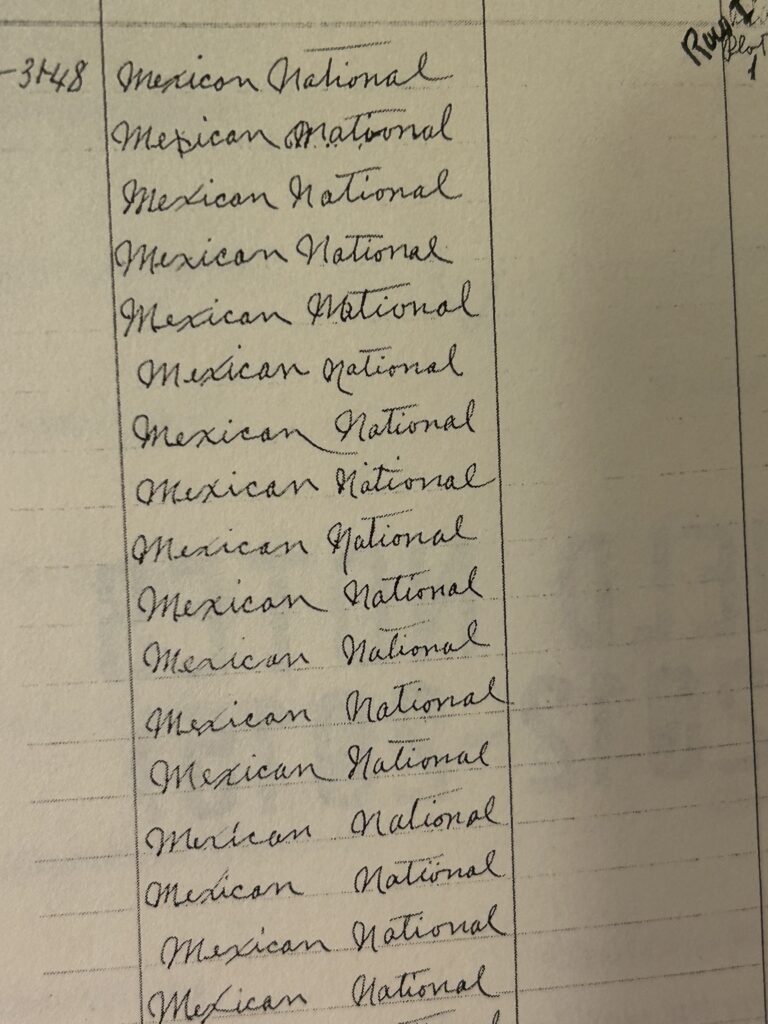 -31-48 Mexican National Row 1 Plot 1
Mexican National
Mexican National
Mexican National
Mexican National
Mexican National
Mexican National
Mexican National
Mexican National
Mexican National
Mexican National
Mexican National
Mexican National
Mexican National
Mexican National
Mexican National
Mexican National